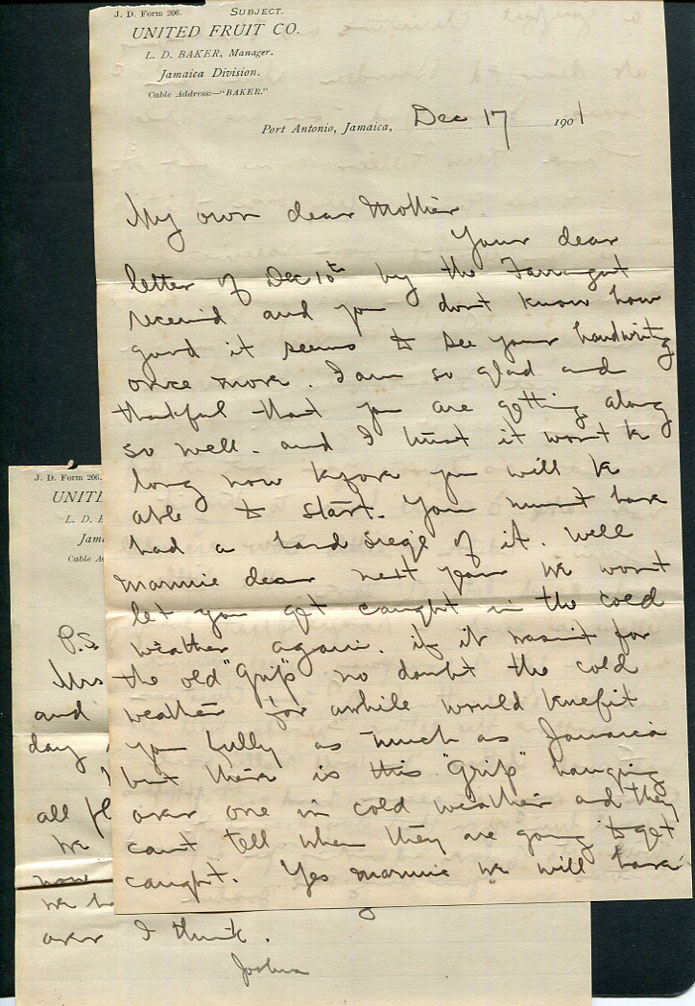 J. D. Form 206. SUBJECT.
UNITED FRUIT CO.
L. D. BAKER, Manager.
Jamaica Division.
Cable Address:—"BAKER."
Port Antonio, Jamaica, Dec 17 1901
My own dear Mother
Your dear
letter of Dec 10th by the Farragut
received and you dont know how
good it seems to see your handwriting
once more. I am so glad and
thankful that you are getting along
so well. and I trust it wont be
long now before you will be
able to start. You must have
had a hard siege of it. Well
Mammie dear next year we wont
let you get caught in the cold
weather again. if it wasn't for
the old "Grip" no doubt the cold
weather for awhile would benefit
you fully as much as Jamaica
but there is this "Grip" hanging
over one in cold weather and they
cant tell when they are going to get
caught. Yes mammie we will have
J. D. Form 206.
UNITE
L. D. B
Jama
Cable Ad
P.S.
Mrs
and
day
all fl
We
now
we h
over I think.
Joshua